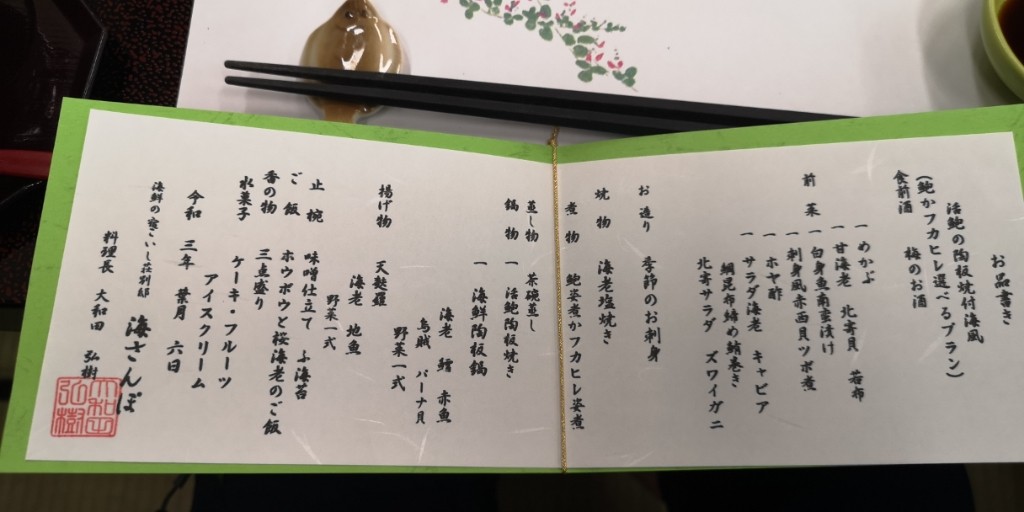 お品書き
活鮑の陶板焼付海風
(鮑かフカヒレ選べるプラン)
食前酒 梅のお酒
前菜 一 めかぶ
一 甘海老 北寄貝 若布
一 白身魚南蛮漬け
一 刺身風赤西貝ツボ煮
一 ホヤ酢
一 サラダ海老 キャビア
鯛昆布締め鯖巻き
北寄サラダ ズワイガニ
お造り 季節のお刺身
焼物 海老塩焼き
煮物 鮑姿煮かフカヒレ姿煮
蒸し物 茶碗蒸し
鍋物 一 活鮑陶板焼き
一 海鮮陶板鍋
海老 鱈 赤魚
烏賊 バーナ貝
野菜一式
揚げ物 天麩羅
海老 地魚
野菜一式
止椀 味噌仕立て ふ海苔
ご飯 ホウボウと桜海老のご飯
香の物 三点盛り
水菓子 ケーキ・フルーツ
アイスクリーム
令和 三年 葉月 六日
海鮮の宿こいし荘別邸 海さんぽ
料理長 大和田 弘樹
大和田
弘樹